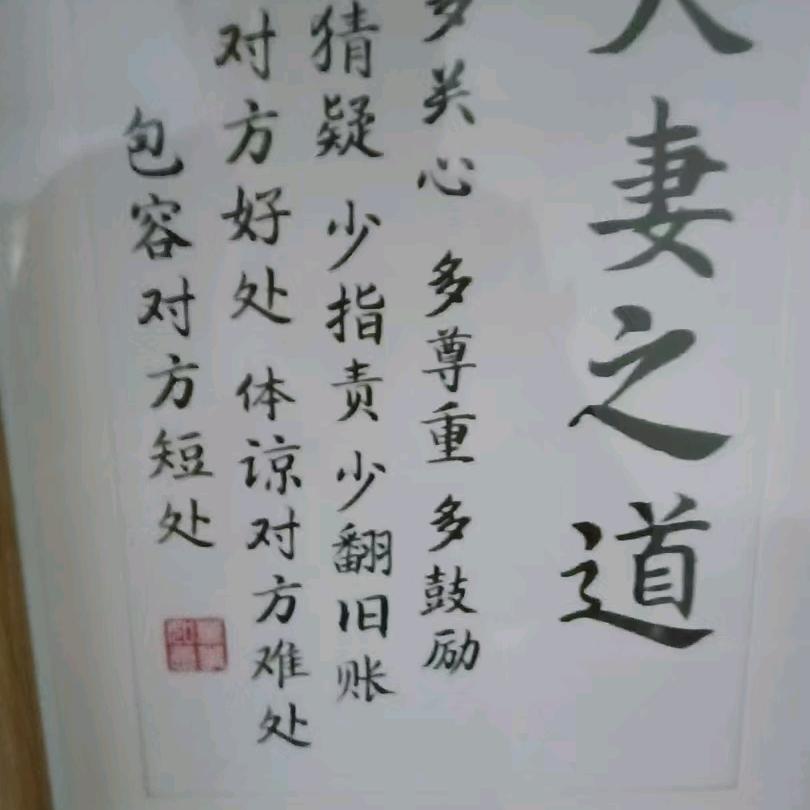 夫妻之道
多关心 多尊重 多鼓励
猜疑 少指责 少翻旧账
对方好处 体谅对方难处
包容对方短处